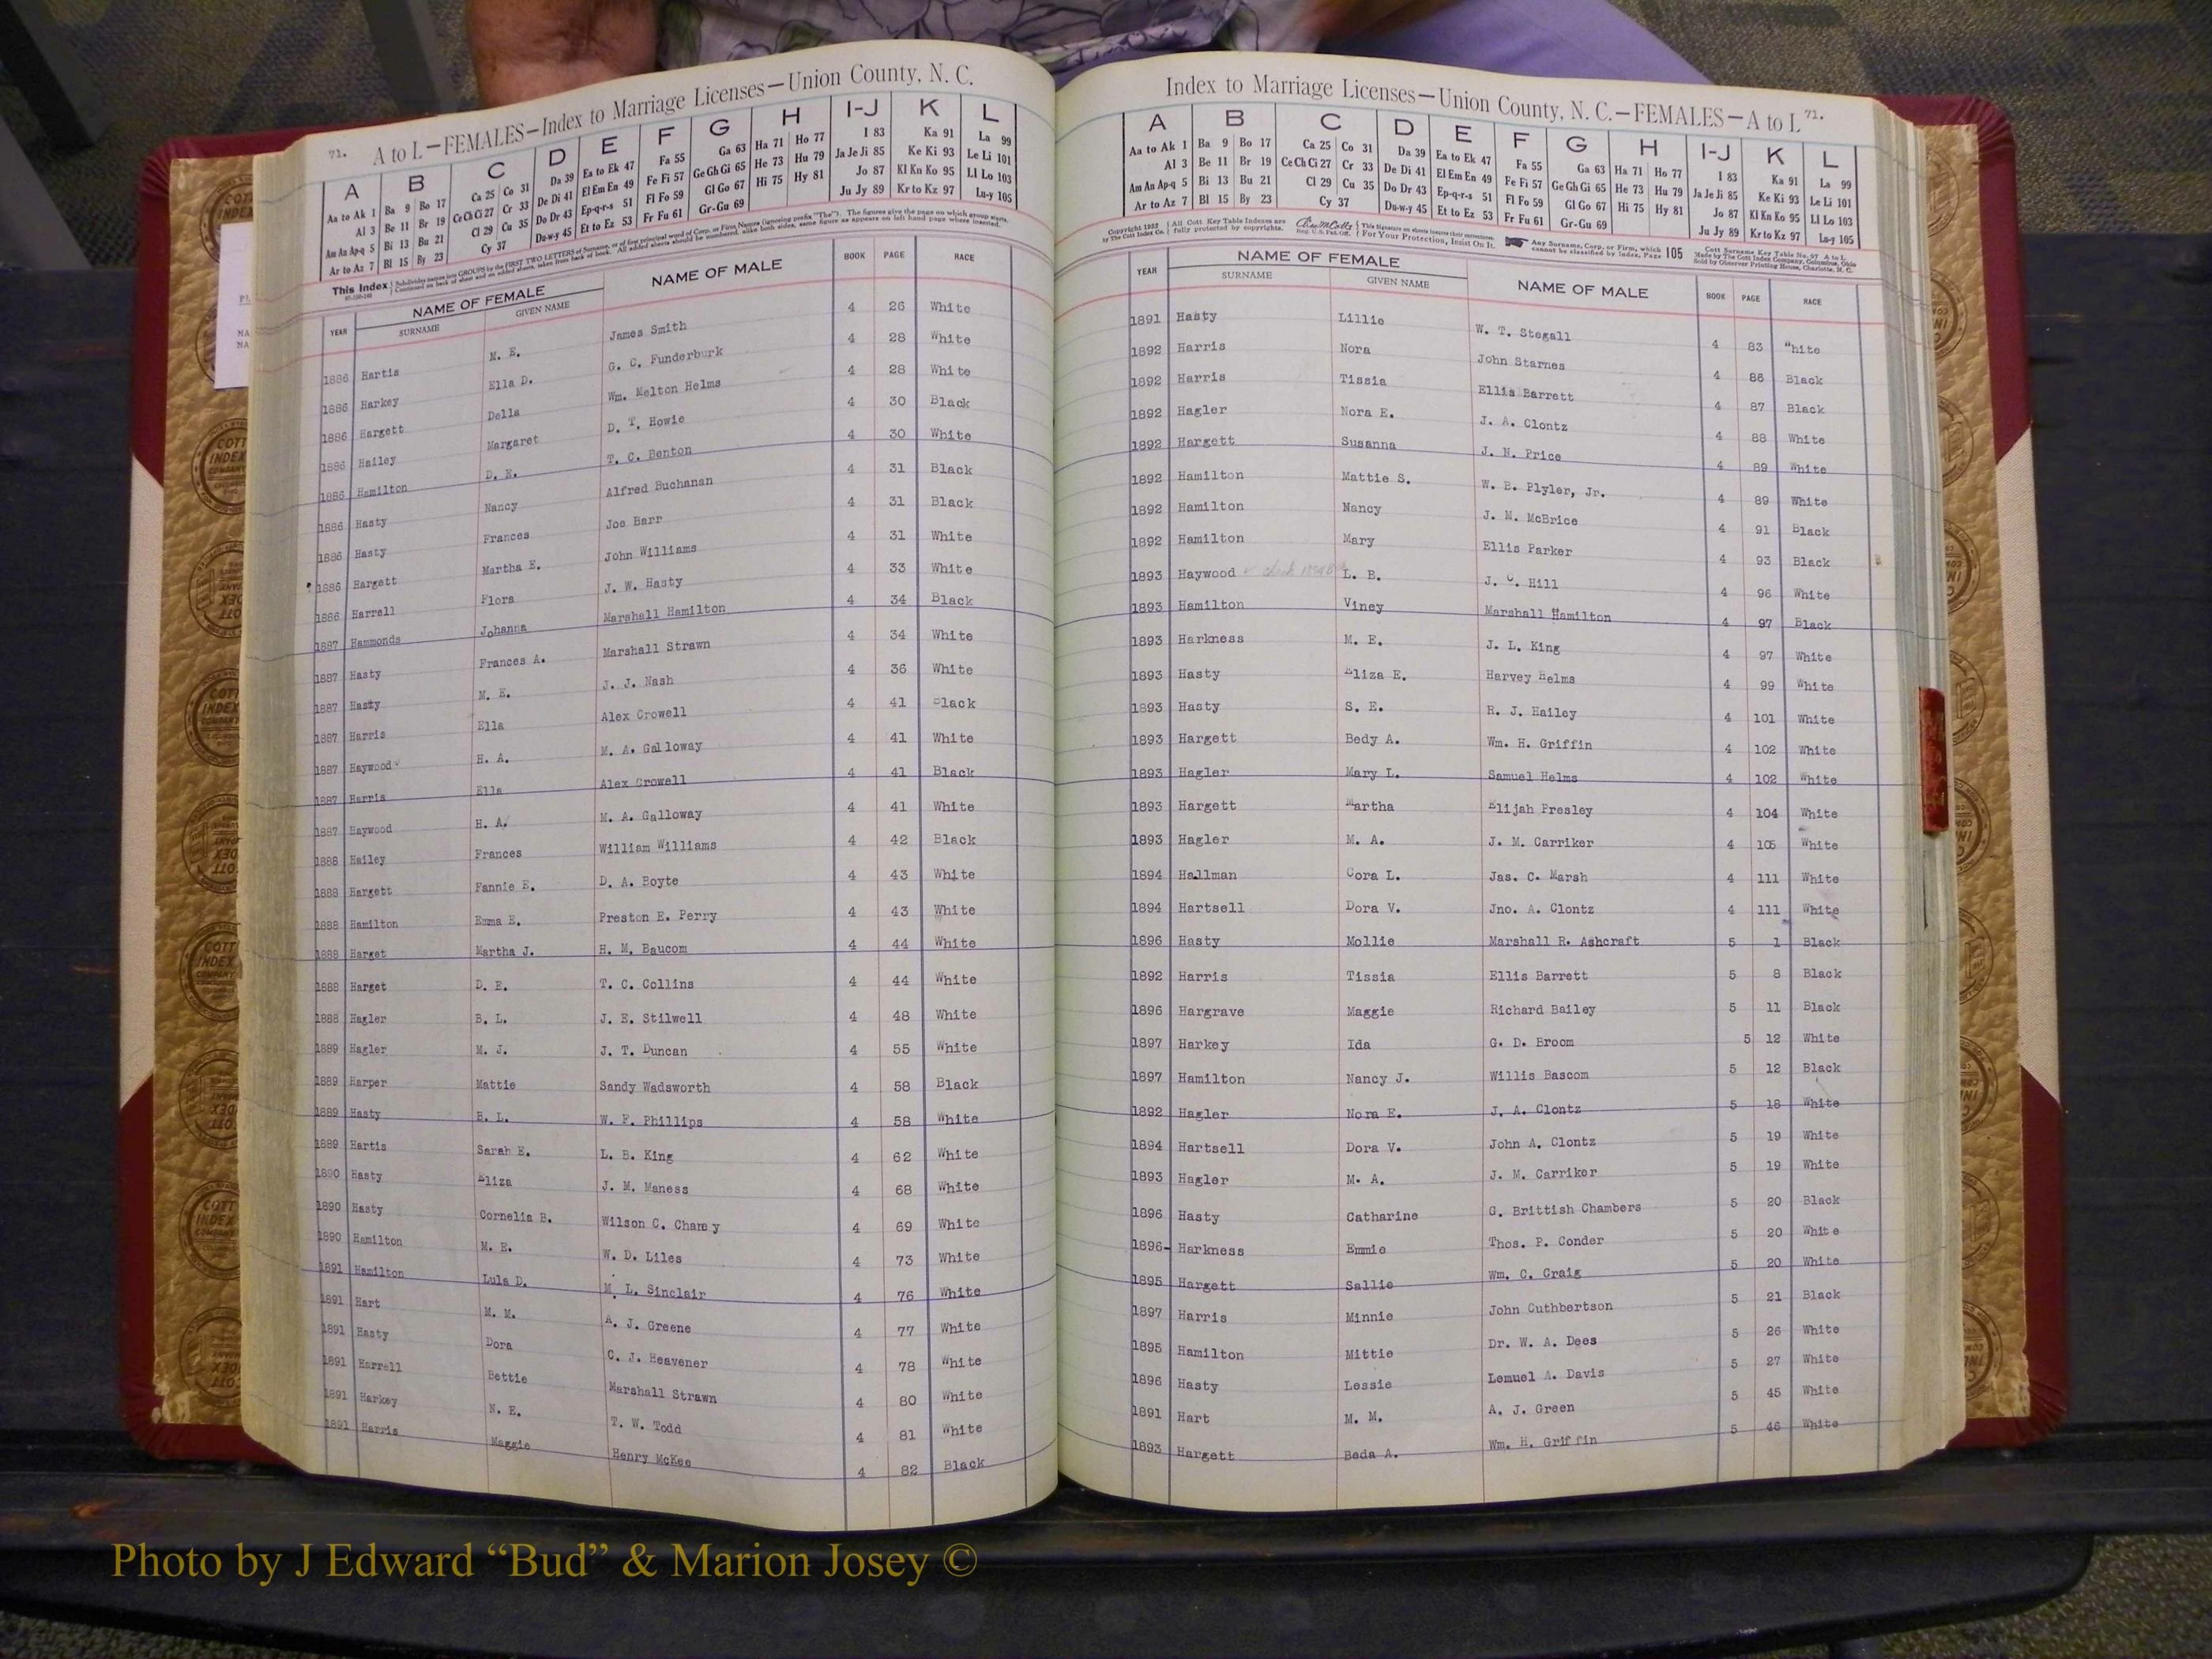 71. A to L—FEMALES—Index to Marriage Licenses—Union County, N. C.
A B C D E F G H I-J K L
Aa to Ak 1 Ba 9 Bo 17 Ca 25 Co 31 Da 39 Ea to Ek 47 Fa 55 Ga 63 Ha 71 Ho 77 I 83 Ka 91 La 99
Al 3 Be 11 Br 19 Ce Ch Ci 27 Cr 33 De Di 41 El Em En 49 Fe Fi 57 Ge Gh Gi 65 He 73 Hu 79 Ja Je Ji 85 Ke Ki 93 Le Li 101
Am An Ap-q 5 Bi 13 Bu 21 Cl 29 Cu 35 Do Dr 43 Ep-q-r-s 51 Fl Fo 59 Gl Go 67 Hi 75 Hy 81 Jo 87 Kl Kn Ko 95 Ll Lo 103
Ar to Az 7 Bl 15 By 23 Cy 37 Du-w-y 45 Et to Ez 53 Fr Fu 61 Gr-Gu 69 Ju Jy 89 Kr to Kz 97 Lu-y 105
This Index Subdivides names into GROUPS by the FIRST TWO LETTERS of Surname, or of first principal word of Corp. or Firm Names (ignoring prefix "The"). The figures give the page on which group starts.
Continued on back of sheet and on added sheets, taken from back of book. All added sheets should be numbered, alike both sides, same figure as appears on left hand page where inserted.
YEAR NAME OF FEMALE NAME OF MALE BOOK PAGE RACE
SURNAME GIVEN NAME
1886 Hartis M. E. James Smith 4 26 White
1886 Harkey Ella D. G. C. Funderburk 4 28 White
1886 Hargett Della Wm. Melton Helms 4 28 White
1886 Hailey Margaret D. T. Howie 4 30 Black
1886 Hamilton D. E. T. C. Benton 4 30 White
1886 Hasty Nancy Alfred Buchanan 4 31 Black
1886 Hasty Frances Joe Barr 4 31 Black
1886 Hargett Martha E. John Williams 4 31 White
1886 Harrell Flora J. W. Hasty 4 33 White
1887 Hammonds Johanna Marshall Hamilton 4 34 Black
1887 Hasty Frances A. Marshall Strawn 4 34 White
1887 Hasty M. E. J. J. Nash 4 36 White
1887 Harris Ella Alex Crowell 4 41 Black
1887 Haywood H. A. M. A. Galloway 4 41 White
1887 Harris Ella Alex Crowell 4 41 Black
1887 Haywood H. A. M. A. Galloway 4 41 White
1888 Hailey Frances William Williams 4 42 Black
1888 Hargett Fannie E. D. A. Boyte 4 43 White
1888 Hamilton Emma E. Preston E. Perry 4 43 White
1888 Harget Martha J. H. M. Baucom 4 44 White
1888 Harget D. E. T. C. Collins 4 44 White
1888 Hagler B. L. J. E. Stilwell 4 48 White
1889 Hagler M. J. J. T. Duncan 4 55 White
1889 Harper Mattie Sandy Wadsworth 4 58 Black
1889 Hasty B. L. W. F. Phillips 4 58 White
1889 Hartis Sarah E. L. B. King 4 62 White
1890 Hasty Eliza J. M. Maness 4 68 White
1890 Hasty Cornelia B. Wilson C. Chaney 4 69 White
1890 Hamilton M. E. W. D. Liles 4 73 White
1891 Hamilton Lula D. M. L. Sinclair 4 76 White
1891 Hart M. M. A. J. Greene 4 77 White
1891 Hasty Dora C. J. Heavener 4 78 White
1891 Harrell Bettie Marshall Strawn 4 80 White
1891 Harkey N. E. T. W. Todd 4 81 White
1891 Harris Maggie Henry McKee 4 82 Black
Index to Marriage Licenses—Union County, N. C.—FEMALES—A to L 71.
A B C D E F G H I-J K L
Aa to Ak 1 Ba 9 Bo 17 Ca 25 Co 31 Da 39 Ea to Ek 47 Fa 55 Ga 63 Ha 71 Ho 77 I 83 Ka 91 La 99
Al 3 Be 11 Br 19 Ce Ch Ci 27 Cr 33 De Di 41 El Em En 49 Fe Fi 57 Ge Gh Gi 65 He 73 Hu 79 Ja Je Ji 85 Ke Ki 93 Le Li 101
Am An Ap-q 5 Bi 13 Bu 21 Cl 29 Cu 35 Do Dr 43 Ep-q-r-s 51 Fl Fo 59 Gl Go 67 Hi 75 Hy 81 Jo 87 Kl Kn Ko 95 Ll Lo 103
Ar to Az 7 Bl 15 By 23 Cy 37 Du-w-y 45 Et to Ez 53 Fr Fu 61 Gr-Gu 69 Ju Jy 89 Kr to Kz 97 Lu-y 105
Copyright 1922 by The Cott Index Co. All Cott Key Table Indexes are fully protected by copyrights. This Signature on sheets insures their correctness. For Your Protection, Insist On It. Any Surname, Corp. or Firm, which cannot be classified by Index, Page 105 Cott Surname Key Table No. 97 A to L Made by The Cott Index Company, Columbus, Ohio Sold by Observer Printing House, Charlotte, N. C.
YEAR NAME OF FEMALE NAME OF MALE BOOK PAGE RACE
SURNAME GIVEN NAME
1891 Hasty Lillie W. T. Stegall 4 83 "hite
1892 Harris Nora John Starnes 4 86 Black
1892 Harris Tissia Ellis Barrett 4 87 Black
1892 Hagler Nora E. J. A. Clontz 4 88 White
1892 Hargett Susanna J. N. Price 4 89 White
1892 Hamilton Mattie S. W. B. Plyler, Jr. 4 89 White
1892 Hamilton Nancy J. M. McBrice 4 91 Black
1892 Hamilton Mary Ellis Parker 4 93 Black
1893 Haywood check L. B. J. C. Hill 4 96 White
1893 Hamilton Viney Marshall Hamilton 4 97 Black
1893 Harkness M. E. J. L. King 4 97 White
1893 Hasty Eliza E. Harvey Helms 4 99 White
1893 Hasty S. E. R. J. Hailey 4 101 White
1893 Hargett Bedy A. Wm. H. Griffin 4 102 White
1893 Hagler Mary L. Samuel Helms 4 102 White
1893 Hargett Martha Elijah Presley 4 104 White
1893 Hagler M. A. J. M. Carriker 4 105 White
1894 Hallman Cora L. Jas. C. Marsh 4 111 White
1894 Hartsell Dora V. Jno. A. Clontz 4 111 White
1896 Hasty Mollie Marshall R. Ashcraft 5 1 Black
1892 Harris Tissia Ellis Barrett 5 8 Black
1896 Hargrave Maggie Richard Bailey 5 11 Black
1897 Harkey Ida G. D. Broom 5 12 White
1897 Hamilton Nancy J. Willis Bascom 5 12 Black
1892 Hagler Nora E. J. A. Clontz 5 18 White
1894 Hartsell Dora V. John A. Clontz 5 19 White
1893 Hagler M. A. J. M. Carriker 5 19 White
1896 Hasty Catharine G. Brittish Chambers 5 20 Black
1896- Harkness Emmie Thos. P. Conder 5 20 White
1895 Hargett Sallie Wm. C. Craig 5 20 White
1897 Harris Minnie John Cuthbertson 5 21 Black
1895 Hamilton Mittie Dr. W. A. Dees 5 26 White
1896 Hasty Lessie Lemuel A. Davis 5 27 White
1891 Hart M. M. A. J. Green 5 45 White
1893 Hargett Beda A. Wm. H. Griffin 5 46 White
Photo by J Edward “Bud” & Marion Josey ©